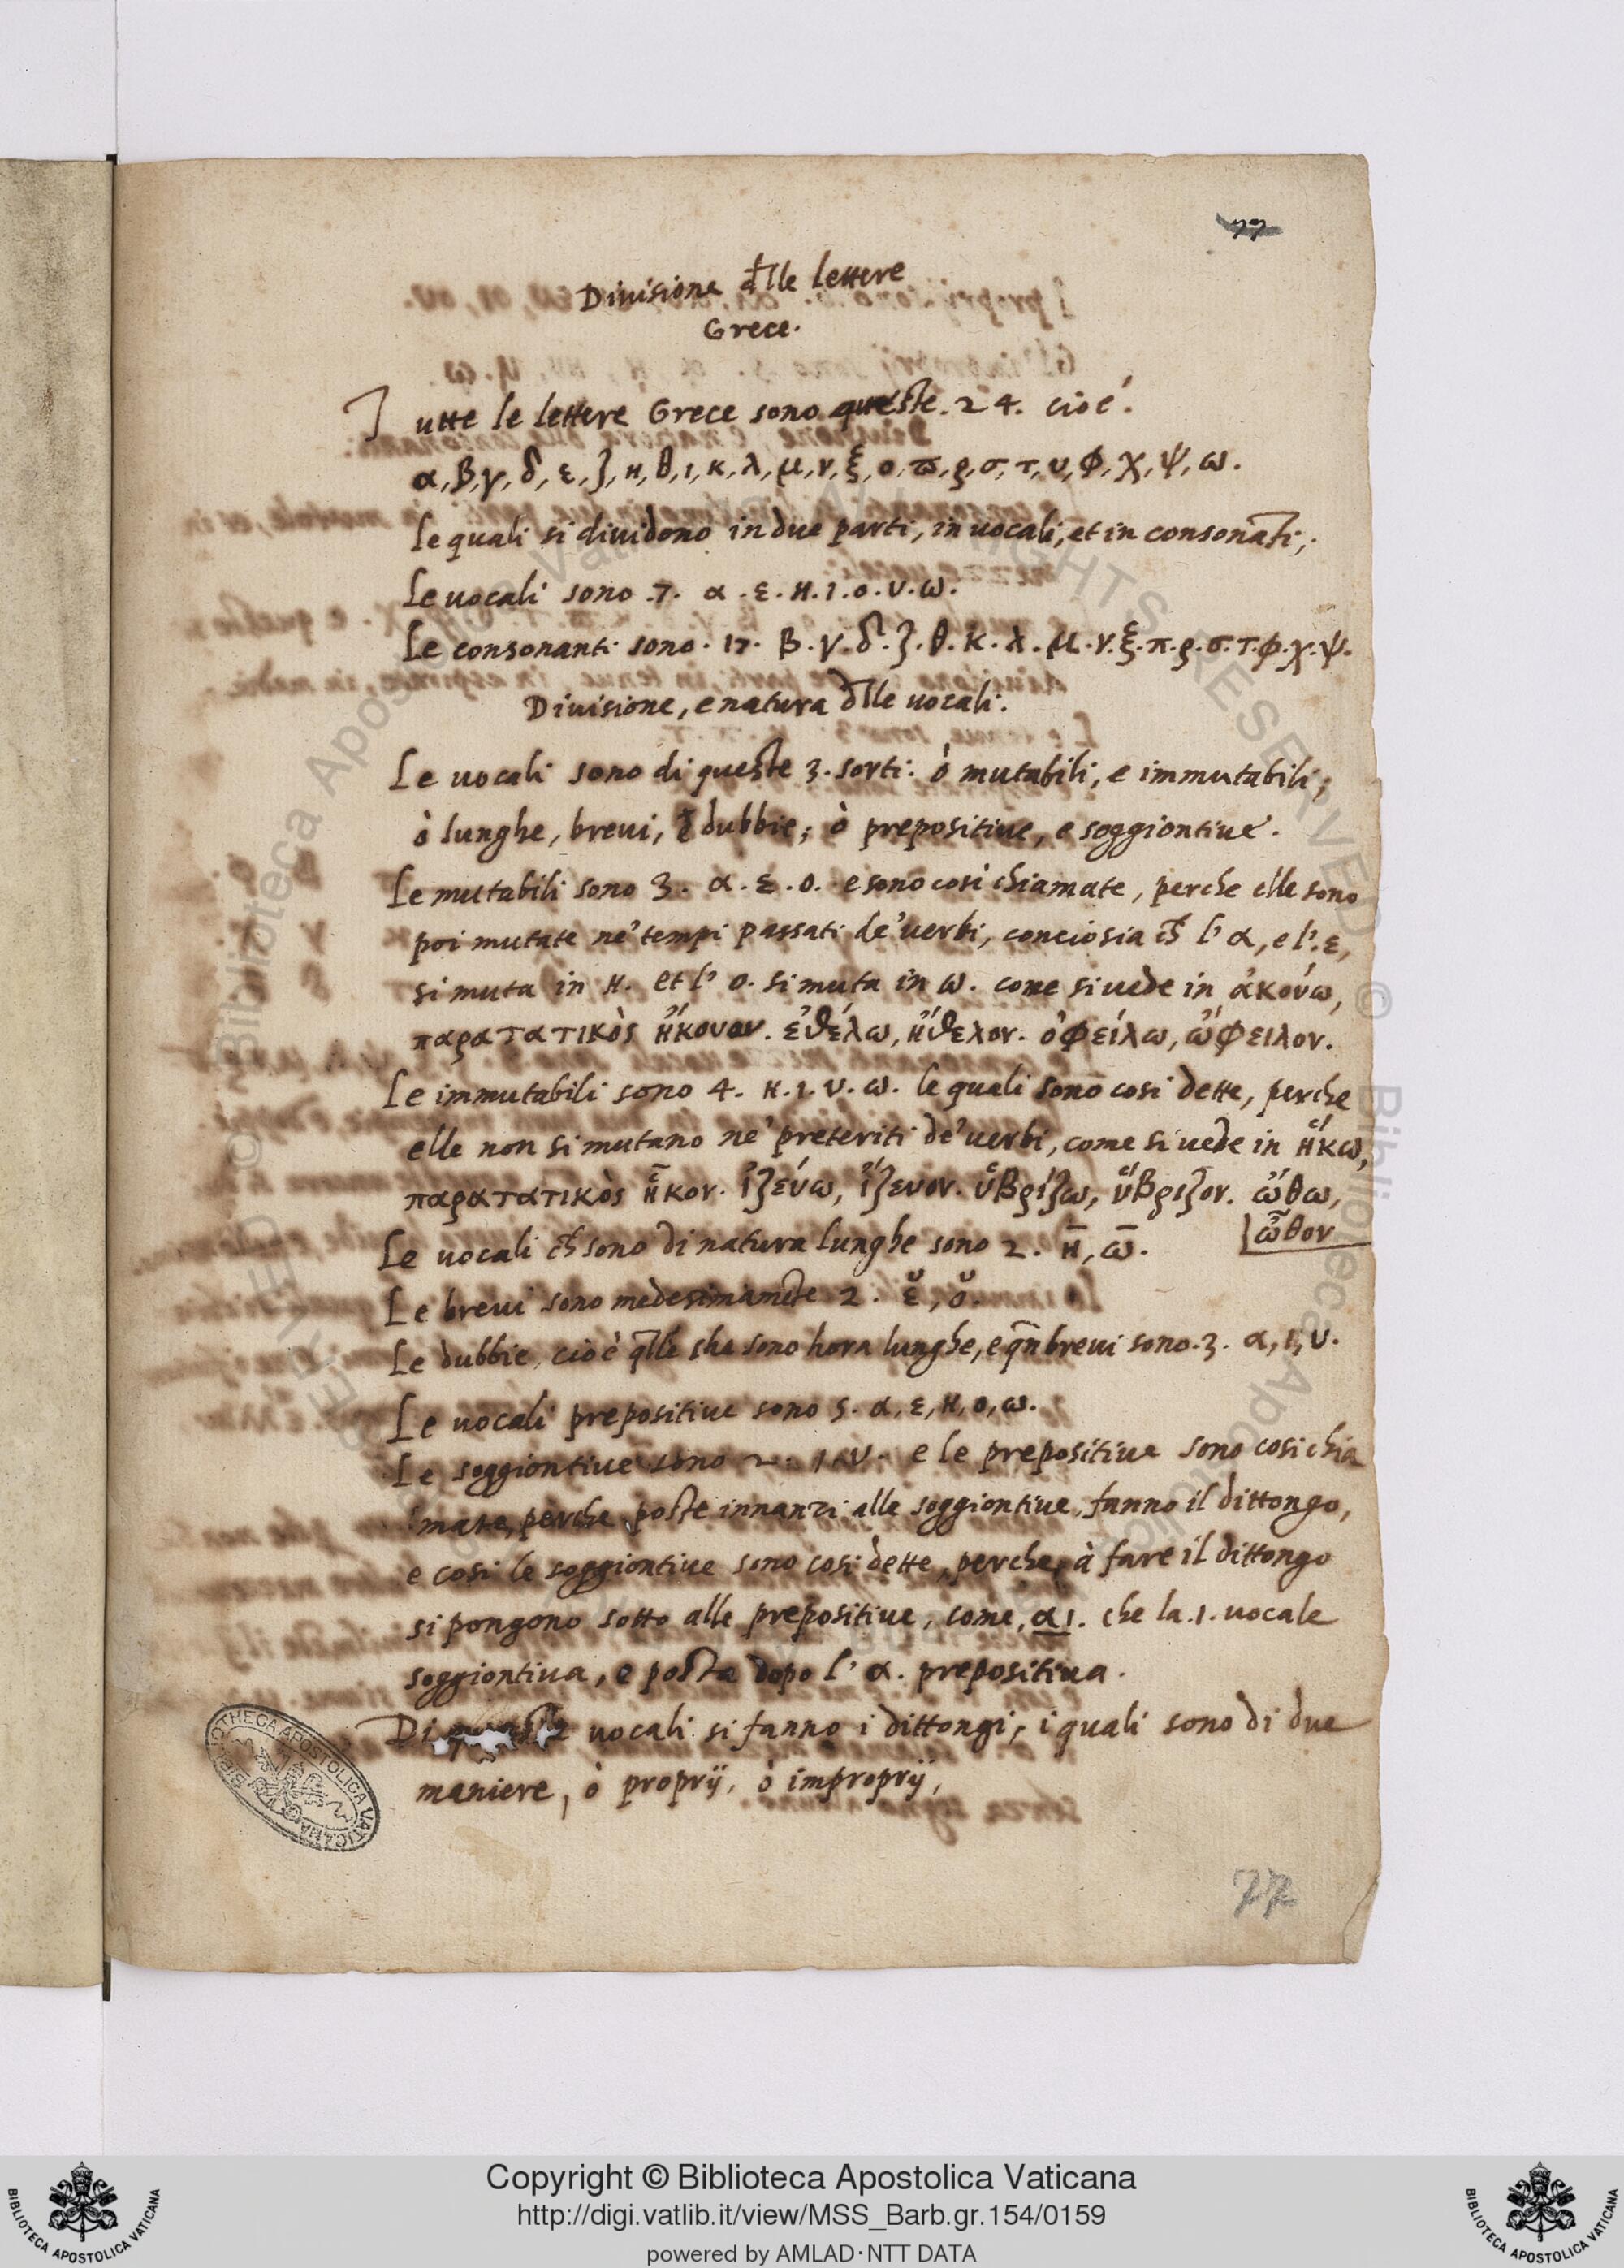 77
Diuisione dlle lettere
Grece.
Tutte le lettere Grece sono queste. 24. cioé.
α, β, γ, δ, ε, ζ, η, θ, ι, κ, λ, μ, ν, ξ, ο, ϖ, ρ, σ, τ, υ, φ, χ, ψ, ω.
le quali si diuidono in due parti, in uocali, et in consonāti,.
Le uocali sono .7. α . ε . η . ι . ο . υ . ω.
Le consonanti sono . 17. β . γ . δ . ζ . θ . κ . λ . μ . ν . ξ . π . ρ . σ . τ . φ . χ . ψ.
Diuisione, e natura dlle uocali.
Le uocali sono di queste 3. sorti: ò mutabili, e immutabili;
ò lunghe, breui, dubbie; ò prepositiue, e soggiontiue.
Le mutabili sono 3. α . ε . ο. e sono cosi chiamate, perche elle sono
poi mutate ne' tempi passati de' uerbi, conciosia ch̄ l' α, e l'. ε,
si muta in η. et l' ο. si muta in ω. come si uede in ἀκούω,
παρατατικὸς ἤκουον. ἐθέλω, ἤθελον. ὀφείλω, ὤφειλον.
Le immutabili sono 4. η . ι . υ . ω. le quali sono cosi dette, perche
elle non si mutano ne' preteriti de' uerbi, come si uede in ἥκω,
παρατατικὸς ἧκον. ἰζεύω, ἴζευον. ὑβρίζω, ὕβριζον. ὤθω,
ὦθον
Le uocali ch̄ sono di natura lunghe sono 2. η̄, ω̄.
Le breui sono medesimamēte 2. ε̆, ο̆.
Le dubbie, cioè q̄lle che sono hora lunghe, e q̄n breui sono .3. α, ι, υ.
Le uocali prepositiue sono 5. α, ε, η, ο, ω.
Le soggiontiue sono 2. ι. υ. e le prepositiue sono cosi chia
mate, perche poste innanzi alle soggiontiue, fanno il dittongo,
e cosi le soggiontiue sono cosi dette, perche, à fare il dittongo
si pongono sotto alle prepositiue, come, αι. che la .ι. uocale
soggiontiua, e posta dopo l' α. prepositiua.
Di uocali si fanno i dittongi, i quali sono di due
maniere, ò proprij, ò improprij,
BIBLIOTHECA APOSTOLICA VATICANA
77
Copyright © Biblioteca Apostolica Vaticana
http://digi.vatlib.it/view/MSS_Barb.gr.154/0159
powered by AMLAD·NTT DATA
BIBLIOTECA APOSTOLICA VATICANA
BIBLIOTECA APOSTOLICA VATICANA